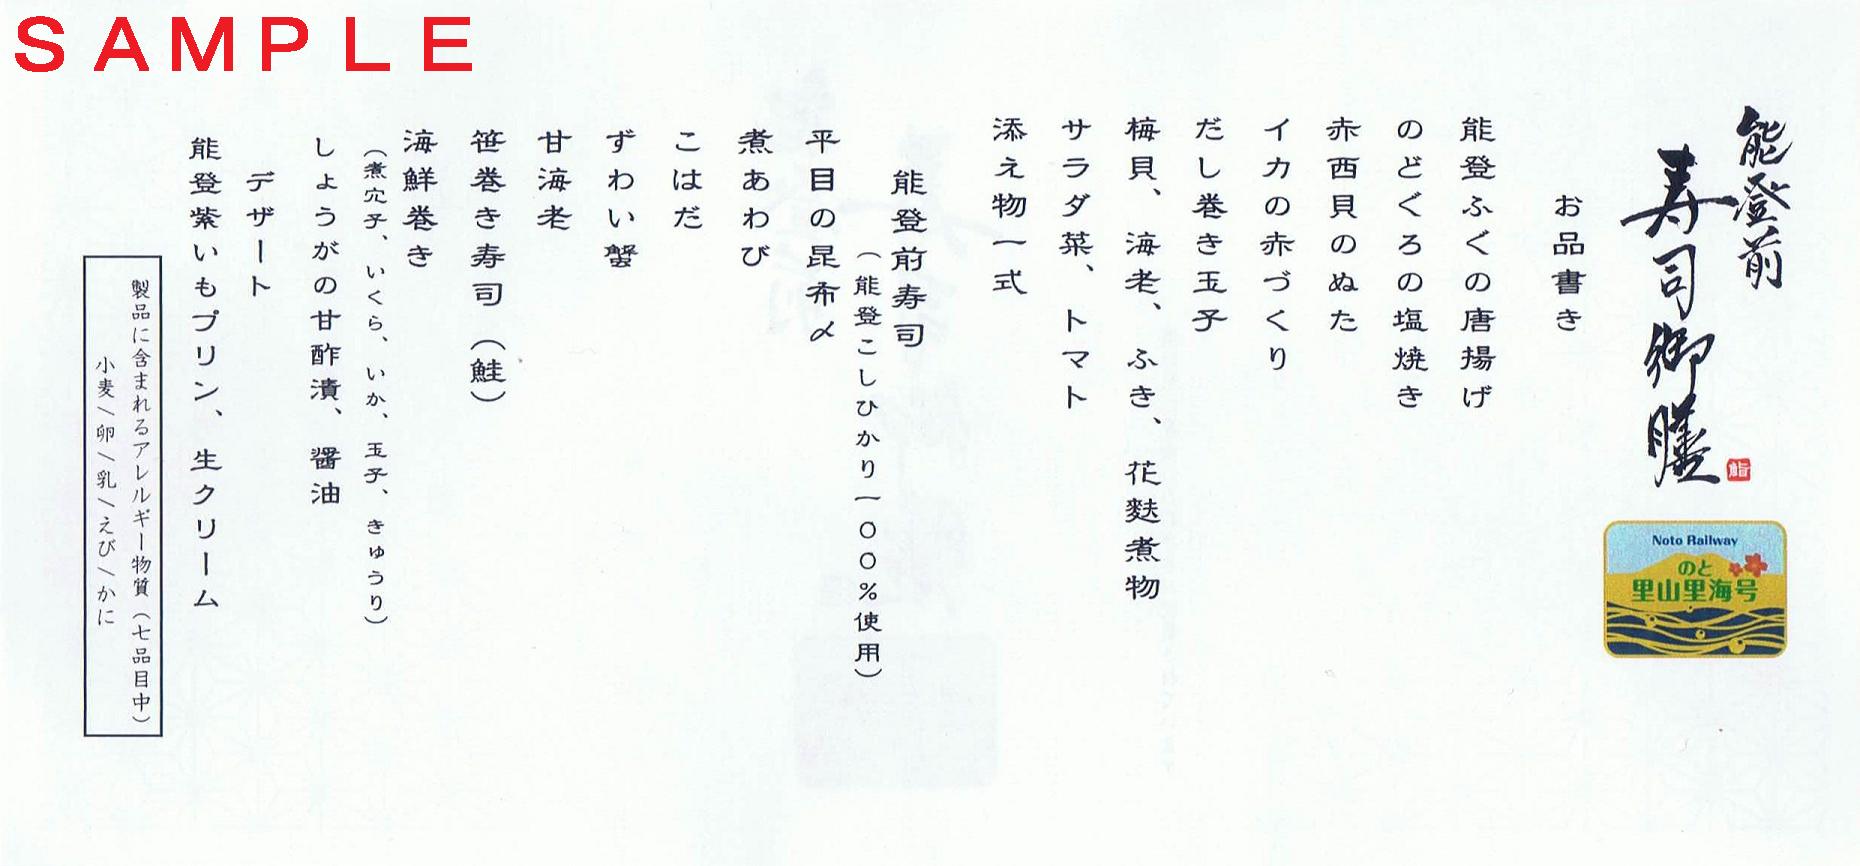 SAMPLE
能登前
寿司御膳
鮨
Noto Railway
のと
里山里海号
お品書き
能登ふぐの唐揚げ
のどぐろの塩焼き
赤西貝のぬた
イカの赤づくり
だし巻き玉子
梅貝、海老、ふき、花麩煮物
サラダ菜、トマト
添え物一式
能登前寿司
（能登こしひかり一〇〇％使用）
平目の昆布〆
煮あわび
こはだ
ずわい蟹
甘海老
笹巻き寿司（鮭）
海鮮巻き
（煮穴子、いくら、いか、玉子、きゅうり）
しょうがの甘酢漬、醤油
デザート
能登紫いもプリン、生クリーム
製品に含まれるアレルギー物質（七品目中）
小麦/卵/乳/えび/かに